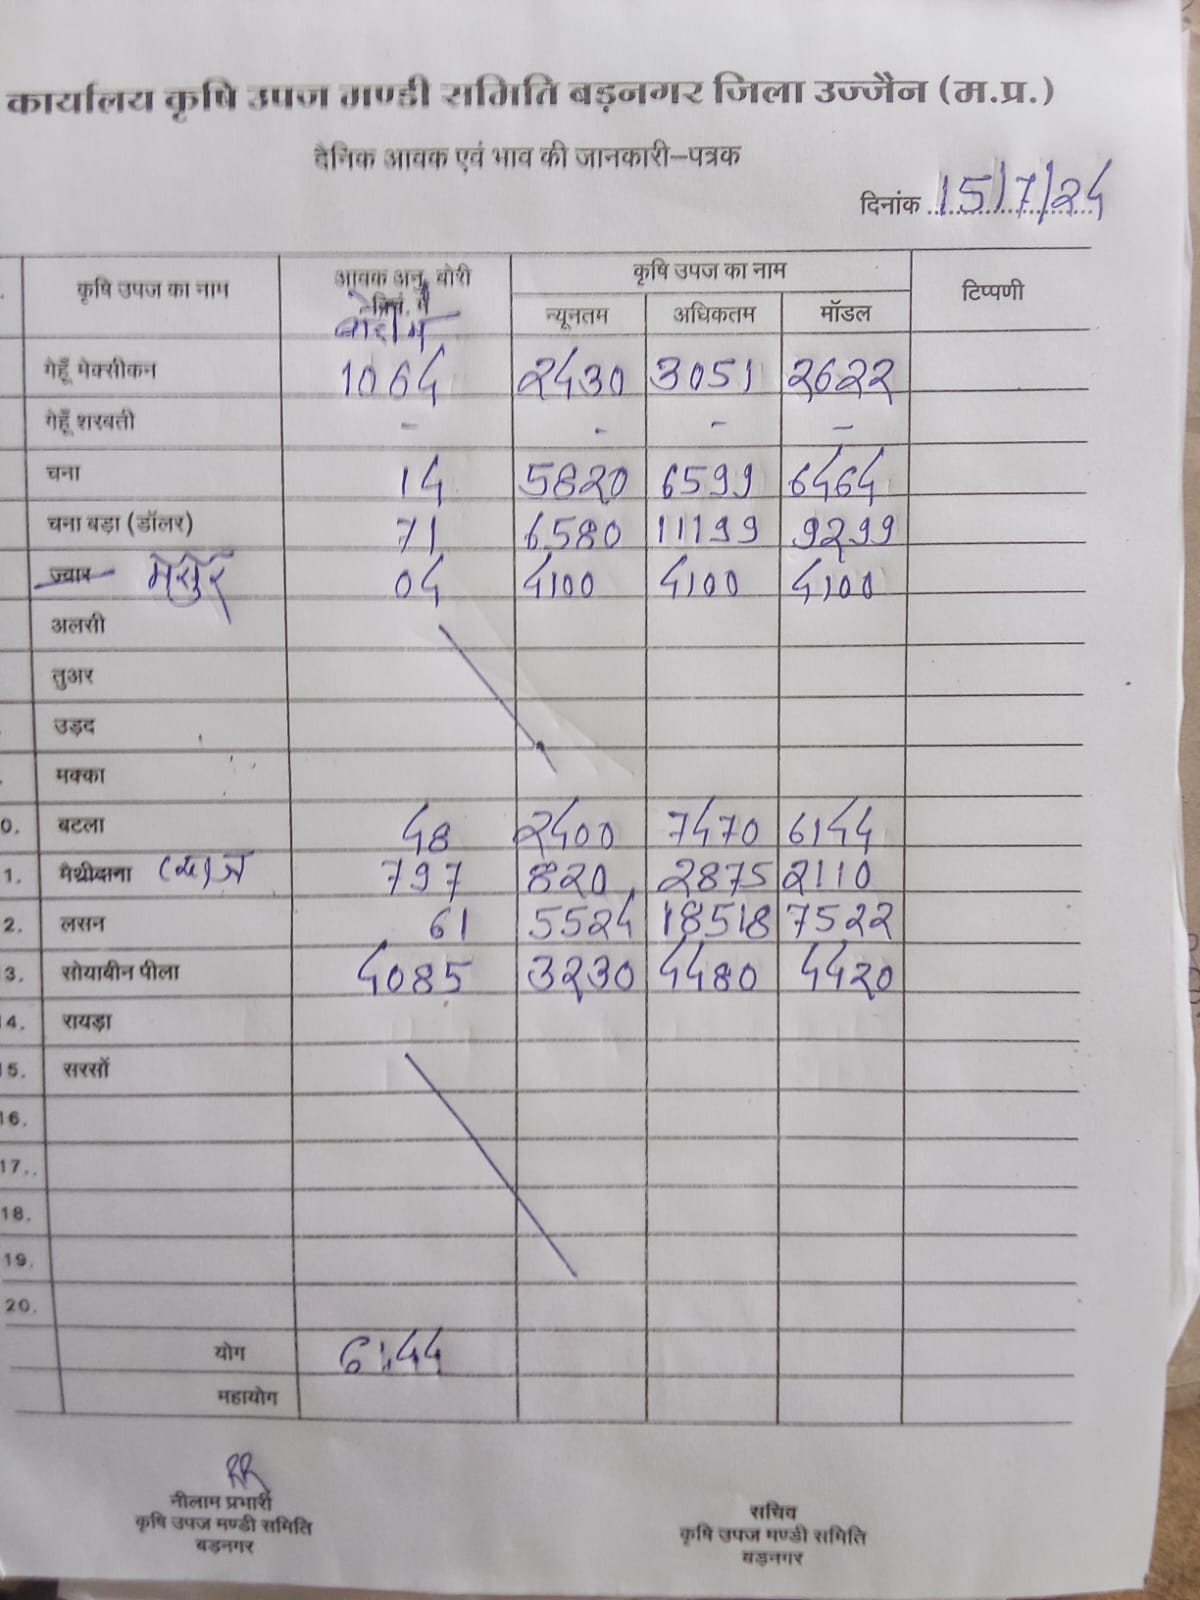 कार्यालय कृषि उपज मण्डी समिति बड़नगर जिला उज्जैन (म.प्र.)
दैनिक आवक एवं भाव की जानकारी–पत्रक
दिनांक 15/7/24
कृषि उपज का नाम आवक अनु. बोरी कृषि उपज का नाम टिप्पणी
न्यूनतम अधिकतम मॉडल
गेहूँ मेक्सीकन 1064 2430 3051 2622
गेहूँ शरबती - - - -
चना 14 5820 6599 6464
चना बड़ा (डॉलर) 71 6580 11199 9299
ज्वार मसुर 04 4100 4100 4100
अलसी
तुअर
उड़द
मक्का
0. बटला 48 2400 7470 6144
1. मैथीदाना 797 820 2875 2110
2. लसन 61 5524 18518 7522
3. सोयाबीन पीला 4085 3230 4480 4420
14. रायड़ा
15. सरसों
16.
17..
18.
19.
20.
योग 6144
महायोग
RR
नीलाम प्रभारी
कृषि उपज मण्डी समिति
बड़नगर
सचिव
कृषि उपज मण्डी समिति
बड़नगर